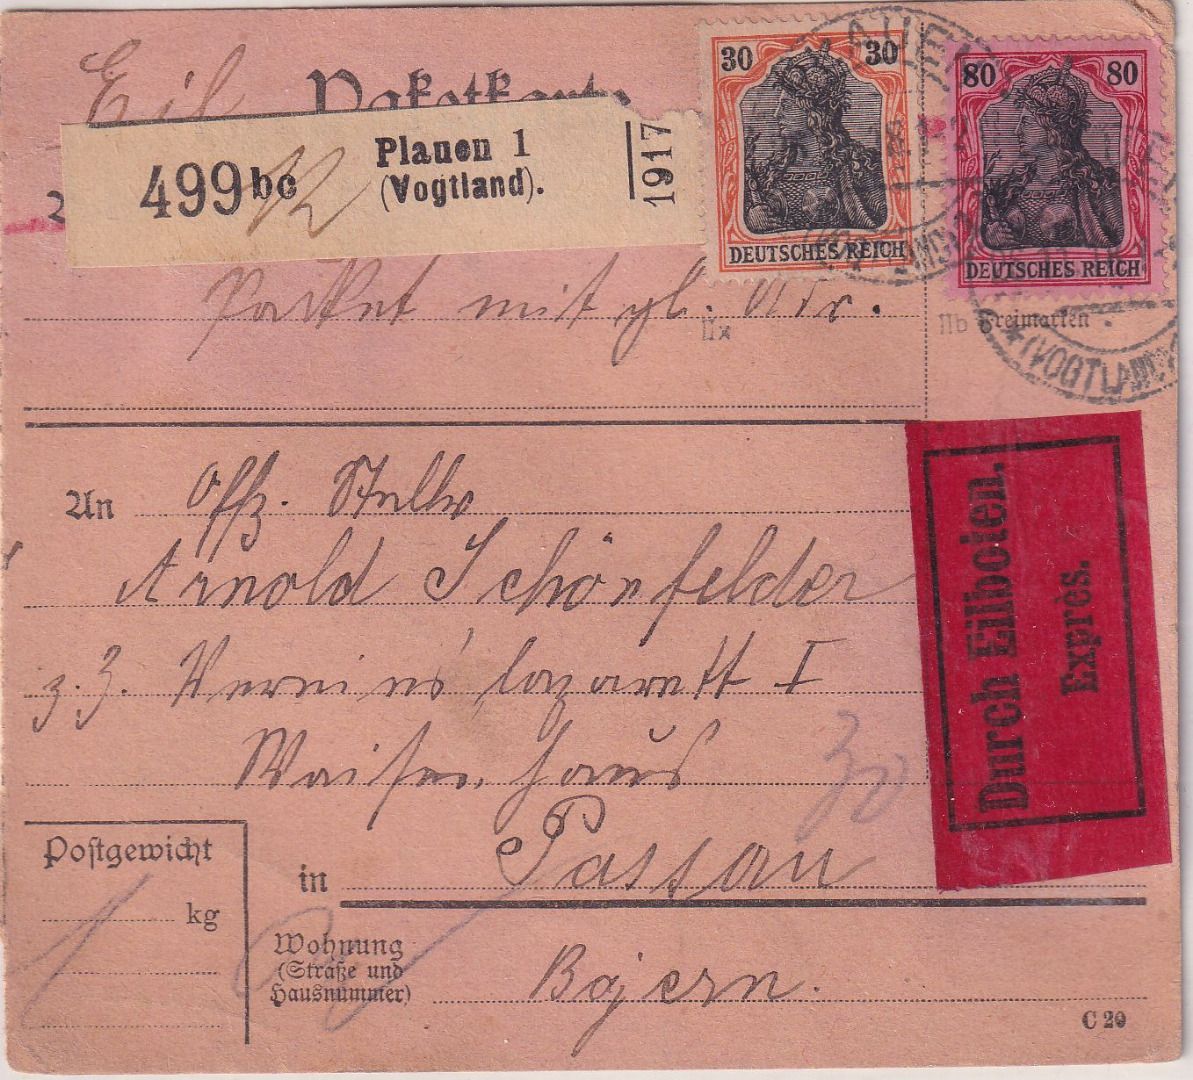 Eil Paketkarte
499 bc
12
Plauen 1
(Vogtland).
1917
30 30
DEUTSCHES REICH
80 80
DEUTSCHES REICH
(VOGTLAND)
Paket mit gl. Adr.
IIb Freimarken
An Offz. Stellv
Arnold Schönfelder
z. Z. Vereinslazarett I
Waisenhaus
30
in Passau
Bayern.
Durch Eilboten.
Exprès.
Postgewicht
1 kg
Wohnung
(Straße und
Hausnummer)
C 20